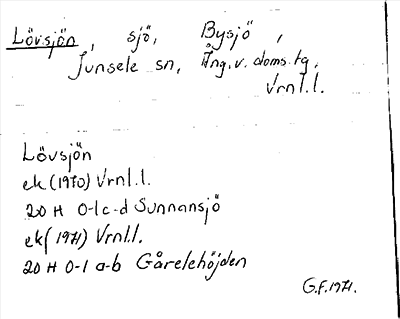 Lövsjön, sjö, Bysjö,
Junsele sn, Ång.v.doms.tg.
Vrnl.l.
Lövsjön
ek(1970) Vrnl.l.
20 H 0-1c-d Sunnansjö
ek(1971) Vrnl.l.
20 H 0-1 a-b Gårelehöjden
G.f.1971.